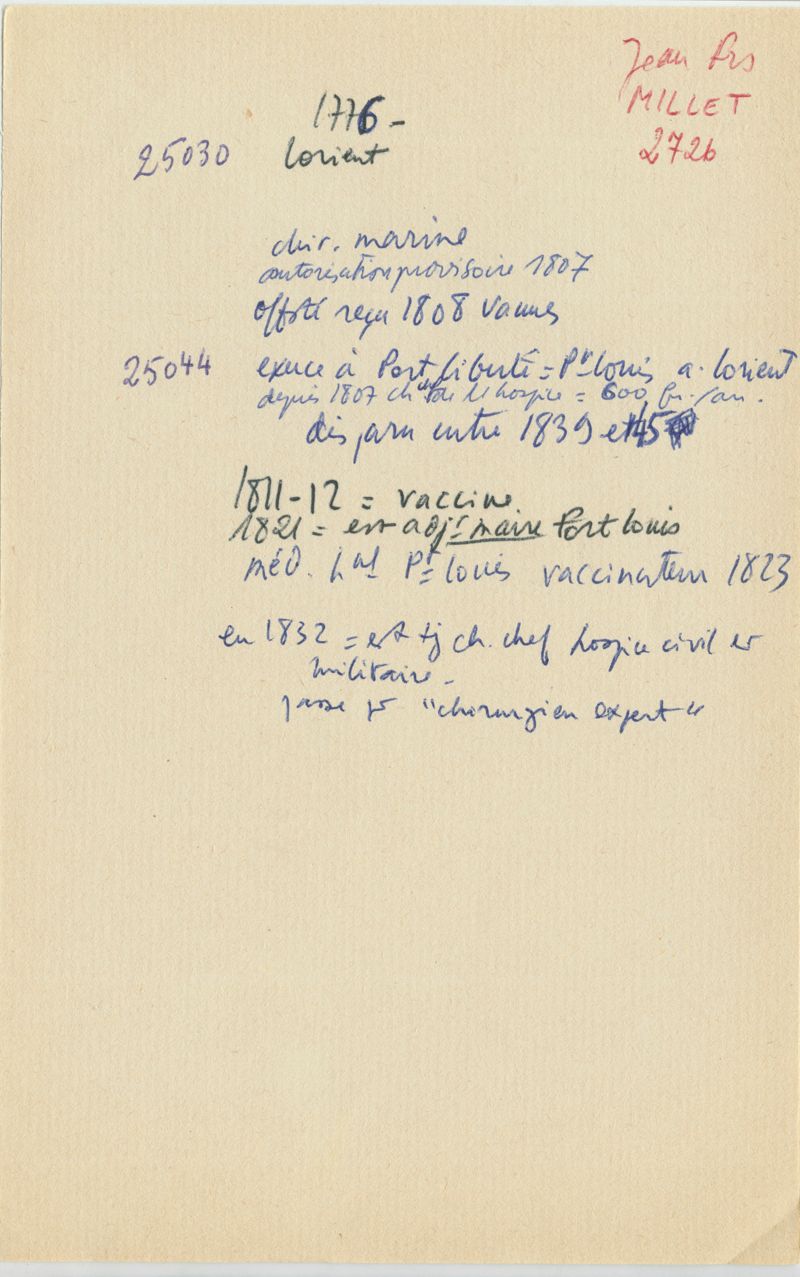 Jean Frs
MILLET
272b
1776 -
25030 Lorient
chir. marine
autorisation provisoire 1807
offsté reçu 1808 Vannes
25044 exerce à Port Liberté = Pt Louis a. Lorient
depuis 1807 ch de l'hospice = 600 fr. / an.
disparu entre 1839 et 45
1811-12 = vaccine
1821 = est adjt maire Port Louis
méd. hal Pt Louis vaccinateur 1823
en 1832 = est tj ch. chef hospice civil et
militaire -
passe pr "chirurgien expert"